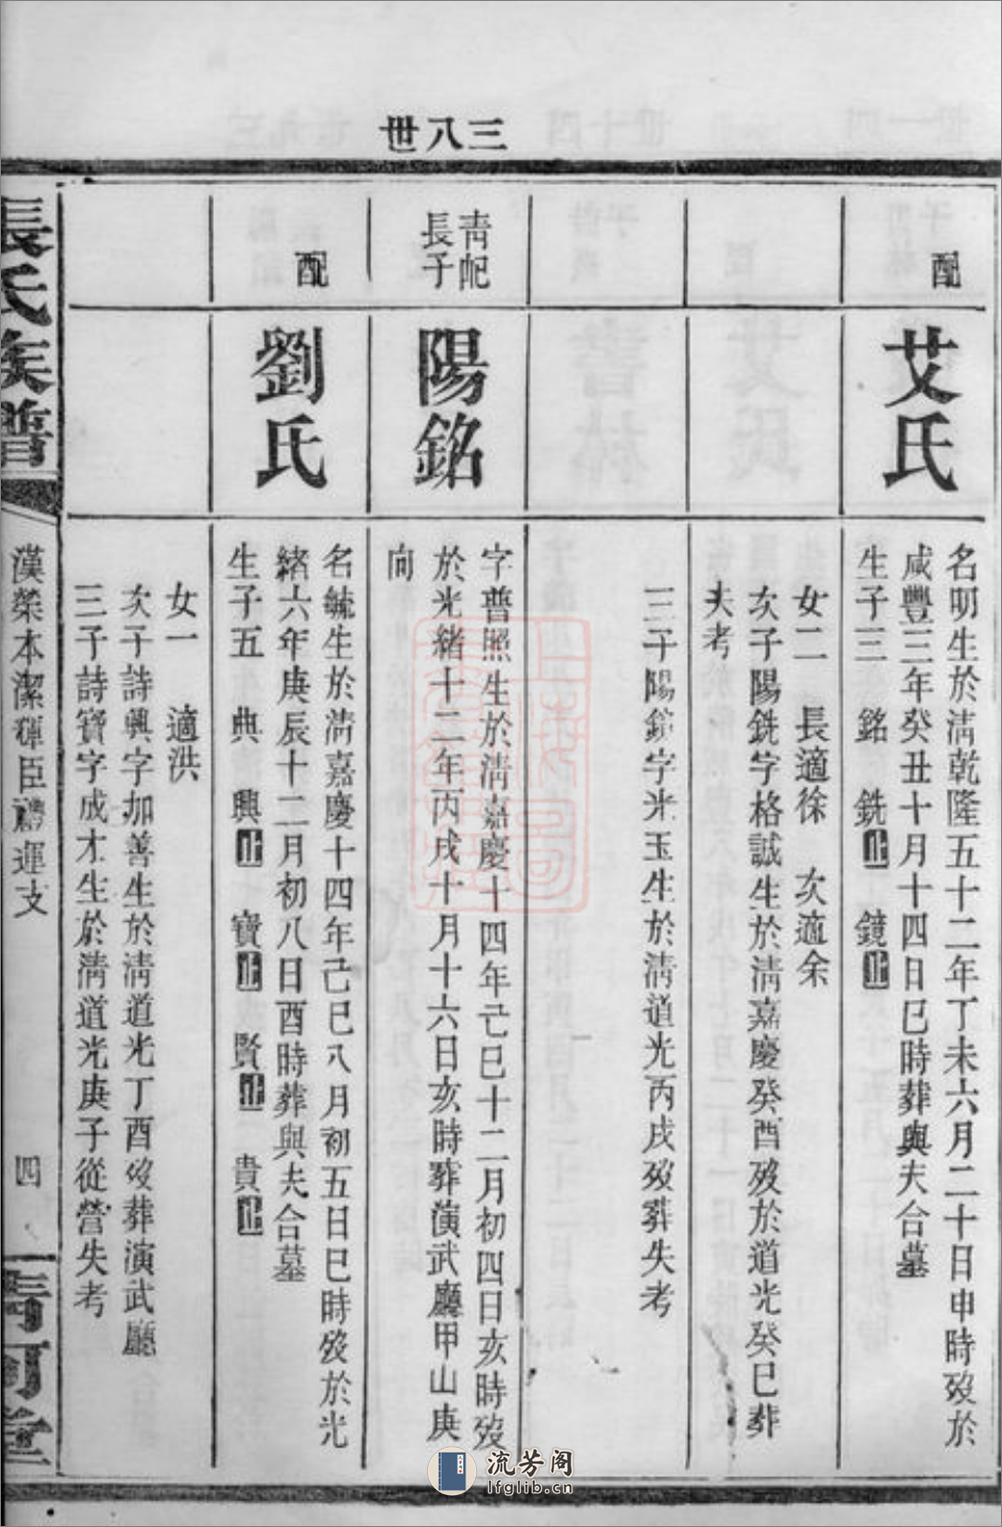 三八世
配
艾氏
名明生於淸乾隆五十二年丁未六月二十日申時歿於
咸豐三年癸丑十月十四日巳時葬與夫合墓
生子三 銘 銑止 鏡止
女二 長適徐 次適余
次子陽銑字格誠生於淸嘉慶癸酉歿於道光癸巳葬
失考
三子陽鏡字光玉生於淸道光丙戌歿葬失考
靑帊
長子
陽銘
字普照生於淸嘉慶十四年己巳十二月初四日亥時歿
於光緒十二年丙戌十月十六日亥時葬演武廳甲山庚
向
配
劉氏
名毓生於淸嘉慶十四年己巳八月初五日巳時歿於光
緒六年庚辰十二月初八日酉時葬與夫合墓
生子五 典 興止 寶止 賢止 貴止
女一 適洪
次子詩興字加善生於淸道光丁酉歿葬演武廳
三子詩寶字成才生於淸道光庚子從營失考
張氏族譜
漢榮本潔煇臣禮運支
四
堂
流芳阁
lfglib.cn